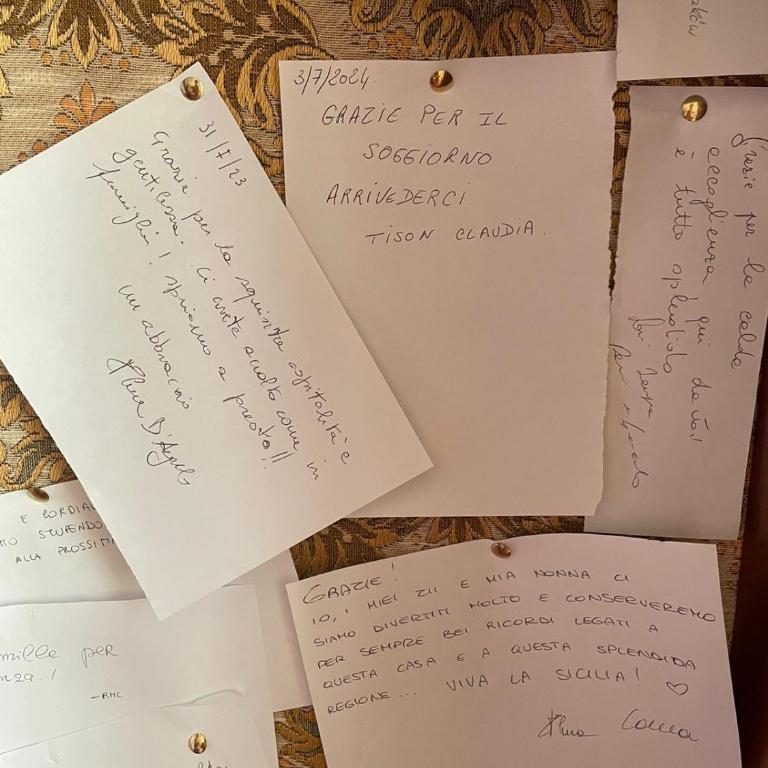 31/7/23
Grazie per la squisita ospitalità e
gentilezza. Ci avete accolto come in
famiglia! speriamo a presto!!
un abbraccio
3/7/2024.
GRAZIE PER IL
SOGGIORNO
ARRIVEDERCI.
TISON CLAUDIA.
raków
Grazie per la calda
accoglienza qui da voi
è tutto splendido
E CORDIAL
STUPENDO
ALLA PROSSIM
mille per
nza!
-RMC
GRAZIE!
IO, I MIEI ZII E MIA NONNA CI
SIAMO DIVERTITI MOLTO E CONSERVEREMO
PER SEMPRE BEI RICORDI LEGATI A
QUESTA CASA E A QUESTA SPLENDIDA
REGIONE... VIVA LA SICILIA! ♡